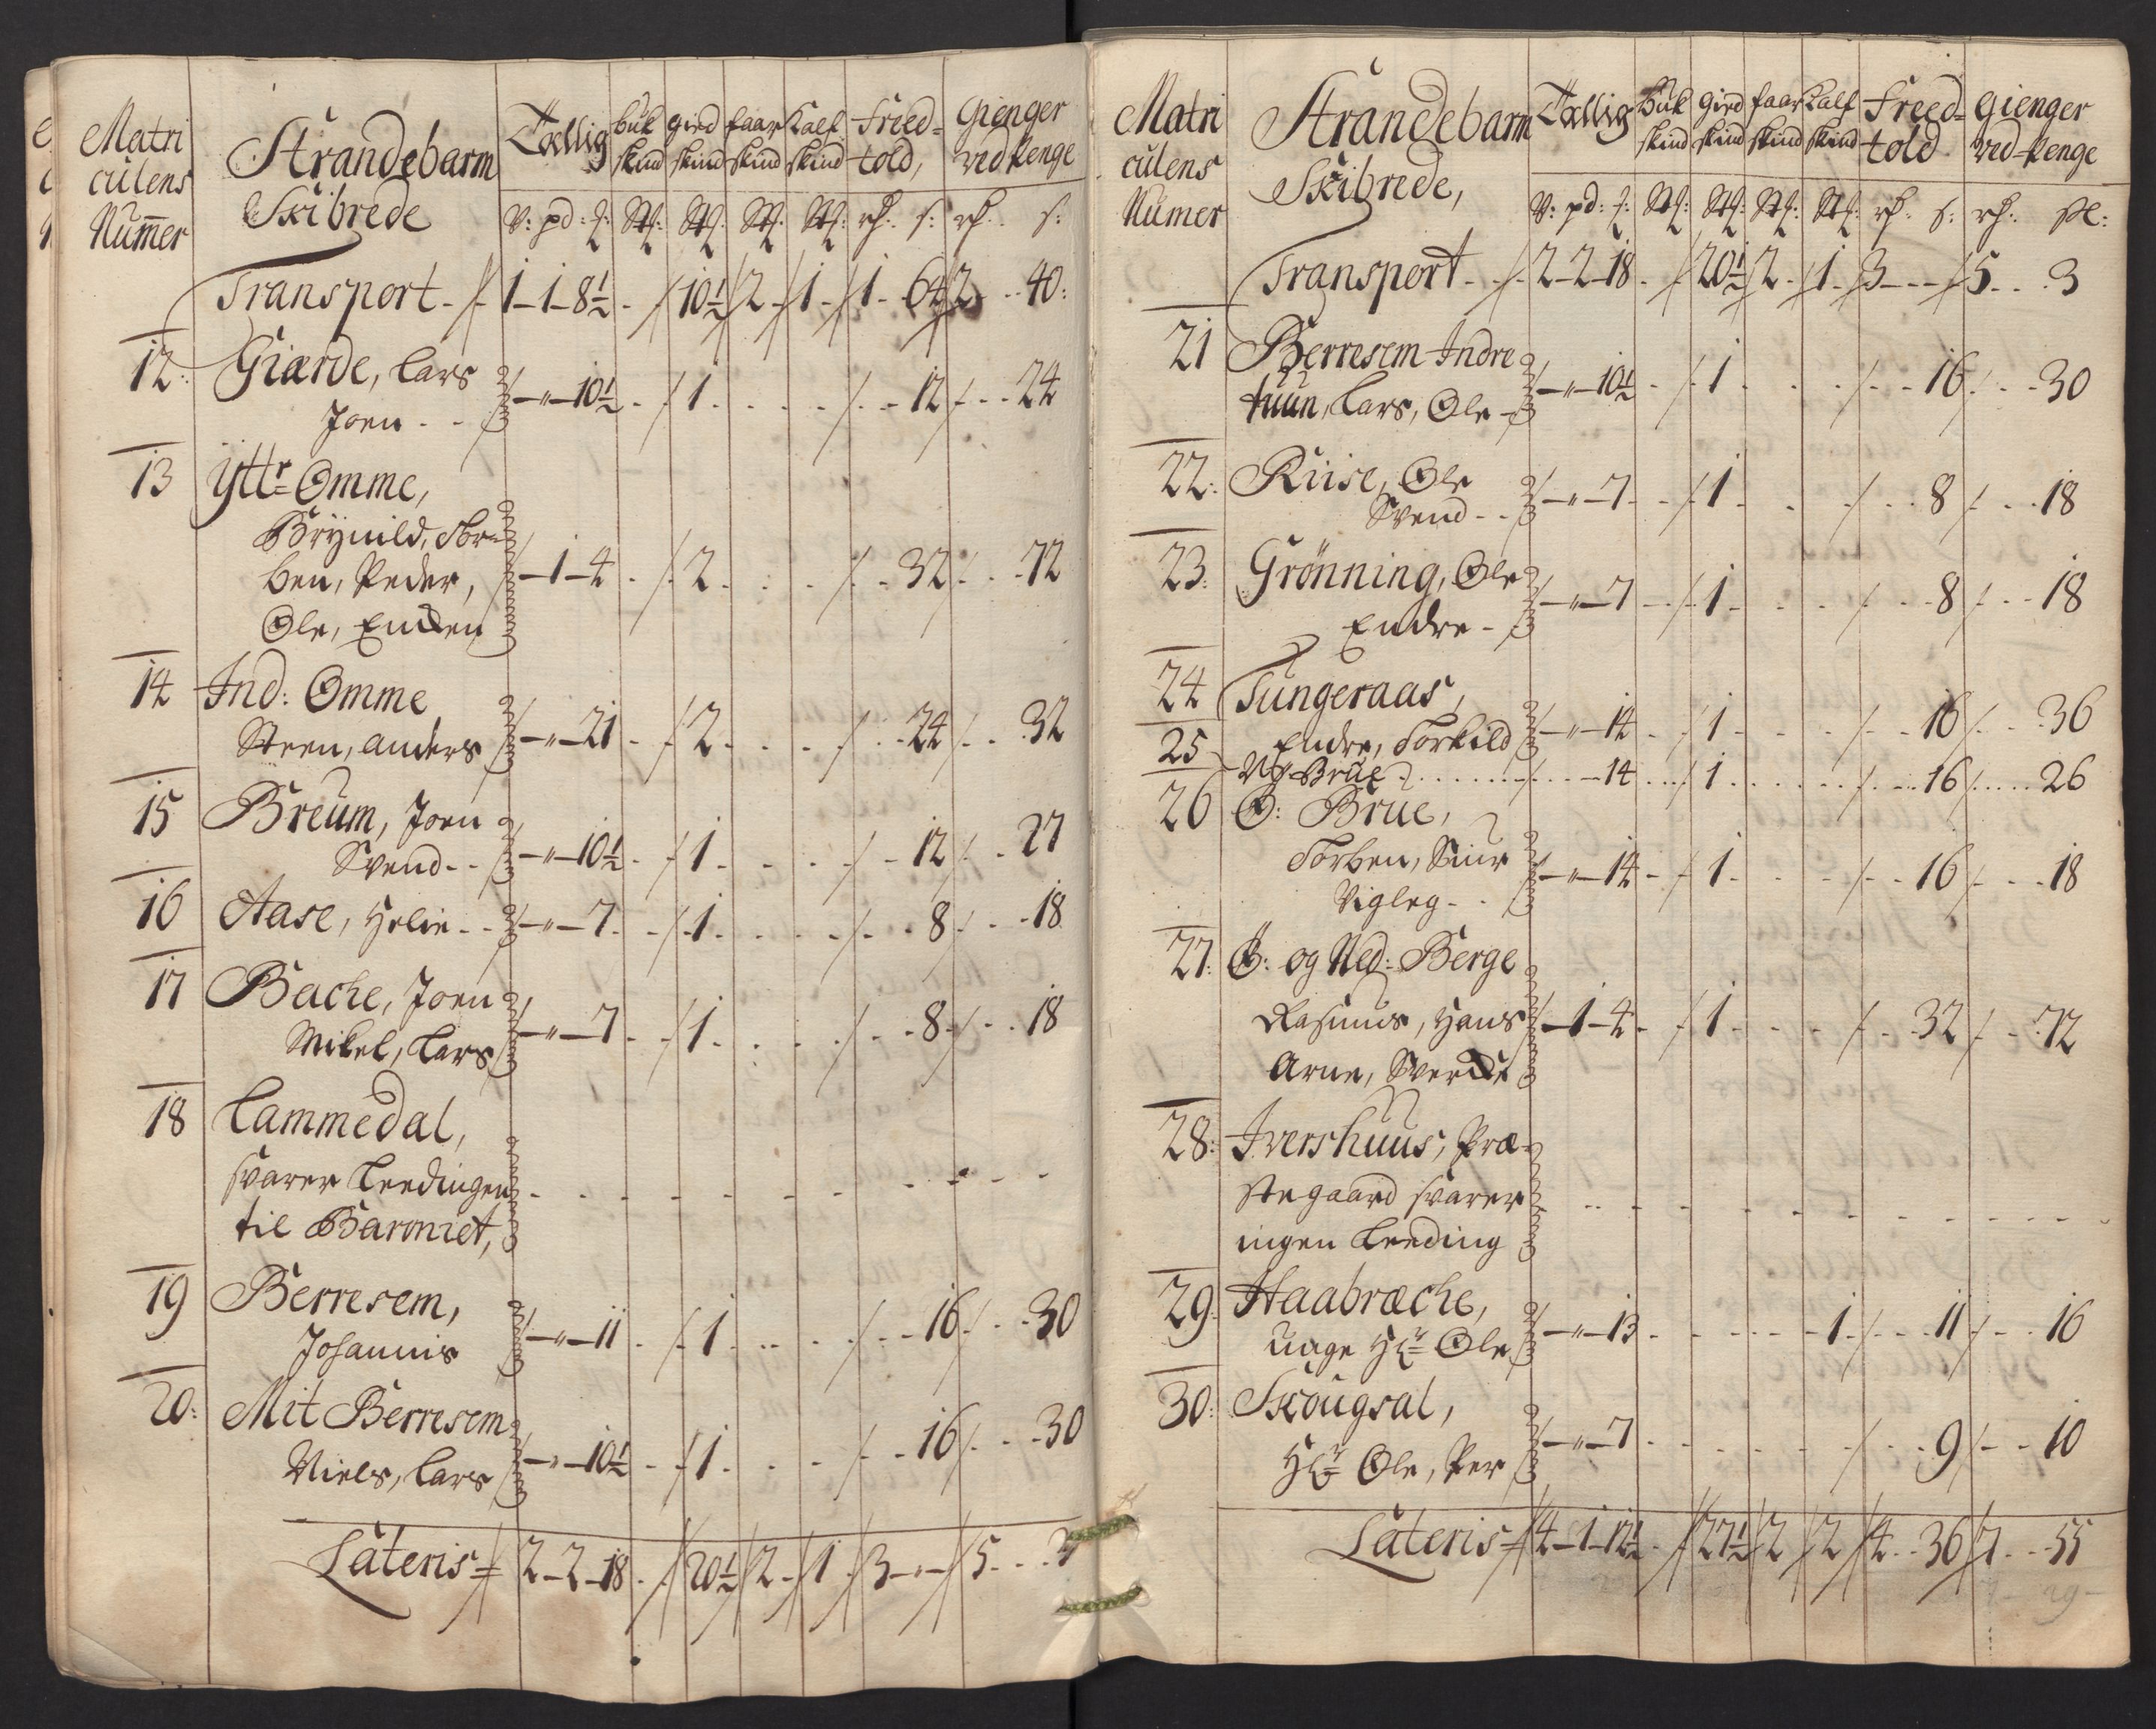 Matri
culens
Num̅er
Strandebarm
Skibrede
Tællig
buk
skind
gied
skind
faar
skind
kalf
skind
Fried=
told,
Gienger
ved penge
V: pd: Stk: Stk: Stk: Stk: s: s:
Transport - 1-1-8½ - 10½ 2 - 1 - 1 - 64 2 - 40:
12: Giærde, Lars
Joen - - -"-10½ - 1 - 12 - 24
13 Ytt^r= Omme,
Brynild, Tor=
ben, Peder, -1-4 - 2 - 32 - 72
Ole, Enden
14 Ind: Omme
Steen, Anders -"-21 - 2 - 24 - 32
15 Breum, Joen
Svend - - -"-10½ - 1 - 12 - 27
16 Aase, Helie - - -"-7 - 1 - 8 - 18
17 Bache, Joen
Mikel, Lars -"-7 - 1 - 8 - 18
18 Lammedal,
svarer Leedingen
til Baroniet,
19 Berresem,
Johannis -"-11 - 1 - 16 - 30
20: Mit Berresem
Niels, Lars -"-10½ - 1 - 16 - 30
Lateris= 2-2-18 - 20½ 2 - 1 - 3-"- 5 - 3
Matri
culens
Numer
Strandebarm
Skibrede,
Tællig
Buk
skind
gied
skind
faar
skind
kalf
skind
Freed=
told
Gienger
ved penge
V: pd: Stk: Stk: Stk: Stk: s:
Transport - 2-2-18 - 20½ 2 - 1 - 3 - - - 5 - 3
21 Berresem Indre
tuun, Lars, Ole - -"-10½ - 1 - 16 - 30
22: Riise, Ole
Svend - - -"-7 - 1 - 8 - 18
23: Grønning, Ole
Endre - -"-7 - 1 - 8 - 18
24 Tungeraas,
Endre, Torkild -"-14 - 1 - 16 - 36
25 Brue - 14 - 1 - 16 - 26
26 Ø: Brue,
Torben, Siur -"-14 - 1 - 16 - 18
Vigleg - -
27: Ø: og Ned: Berge
Rasmus, Hans -1-4 - 1 - 32 - 72
Arne,
28: Ivershuus, Præ=
stegaard svarer
ingen Leeding
29: Haabræche,
H^r= Ole -"-13 - 1 - 11 - 16
30: Skougsal,
H^r= Ole, Per -"-7 - 9 - 10
Lateris= 4-1-12½ - 27½ 2 2 4 - 36 7 - 55